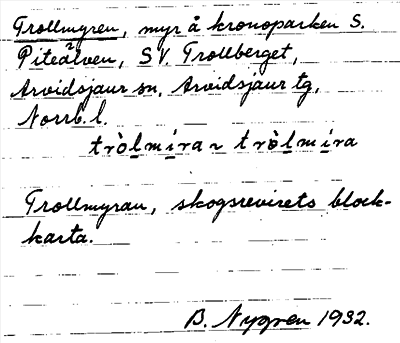 Trollmyren, myr å kronoparken S.
Piteälven, SV. Trollberget,
Arvidsjaur sn, Arvidsjaur tg,
Norrb. l.
tròlmíra ~ tròlmíra
Trollmyran, skogsrevirets block-
karta.
B. Nygren 1932.